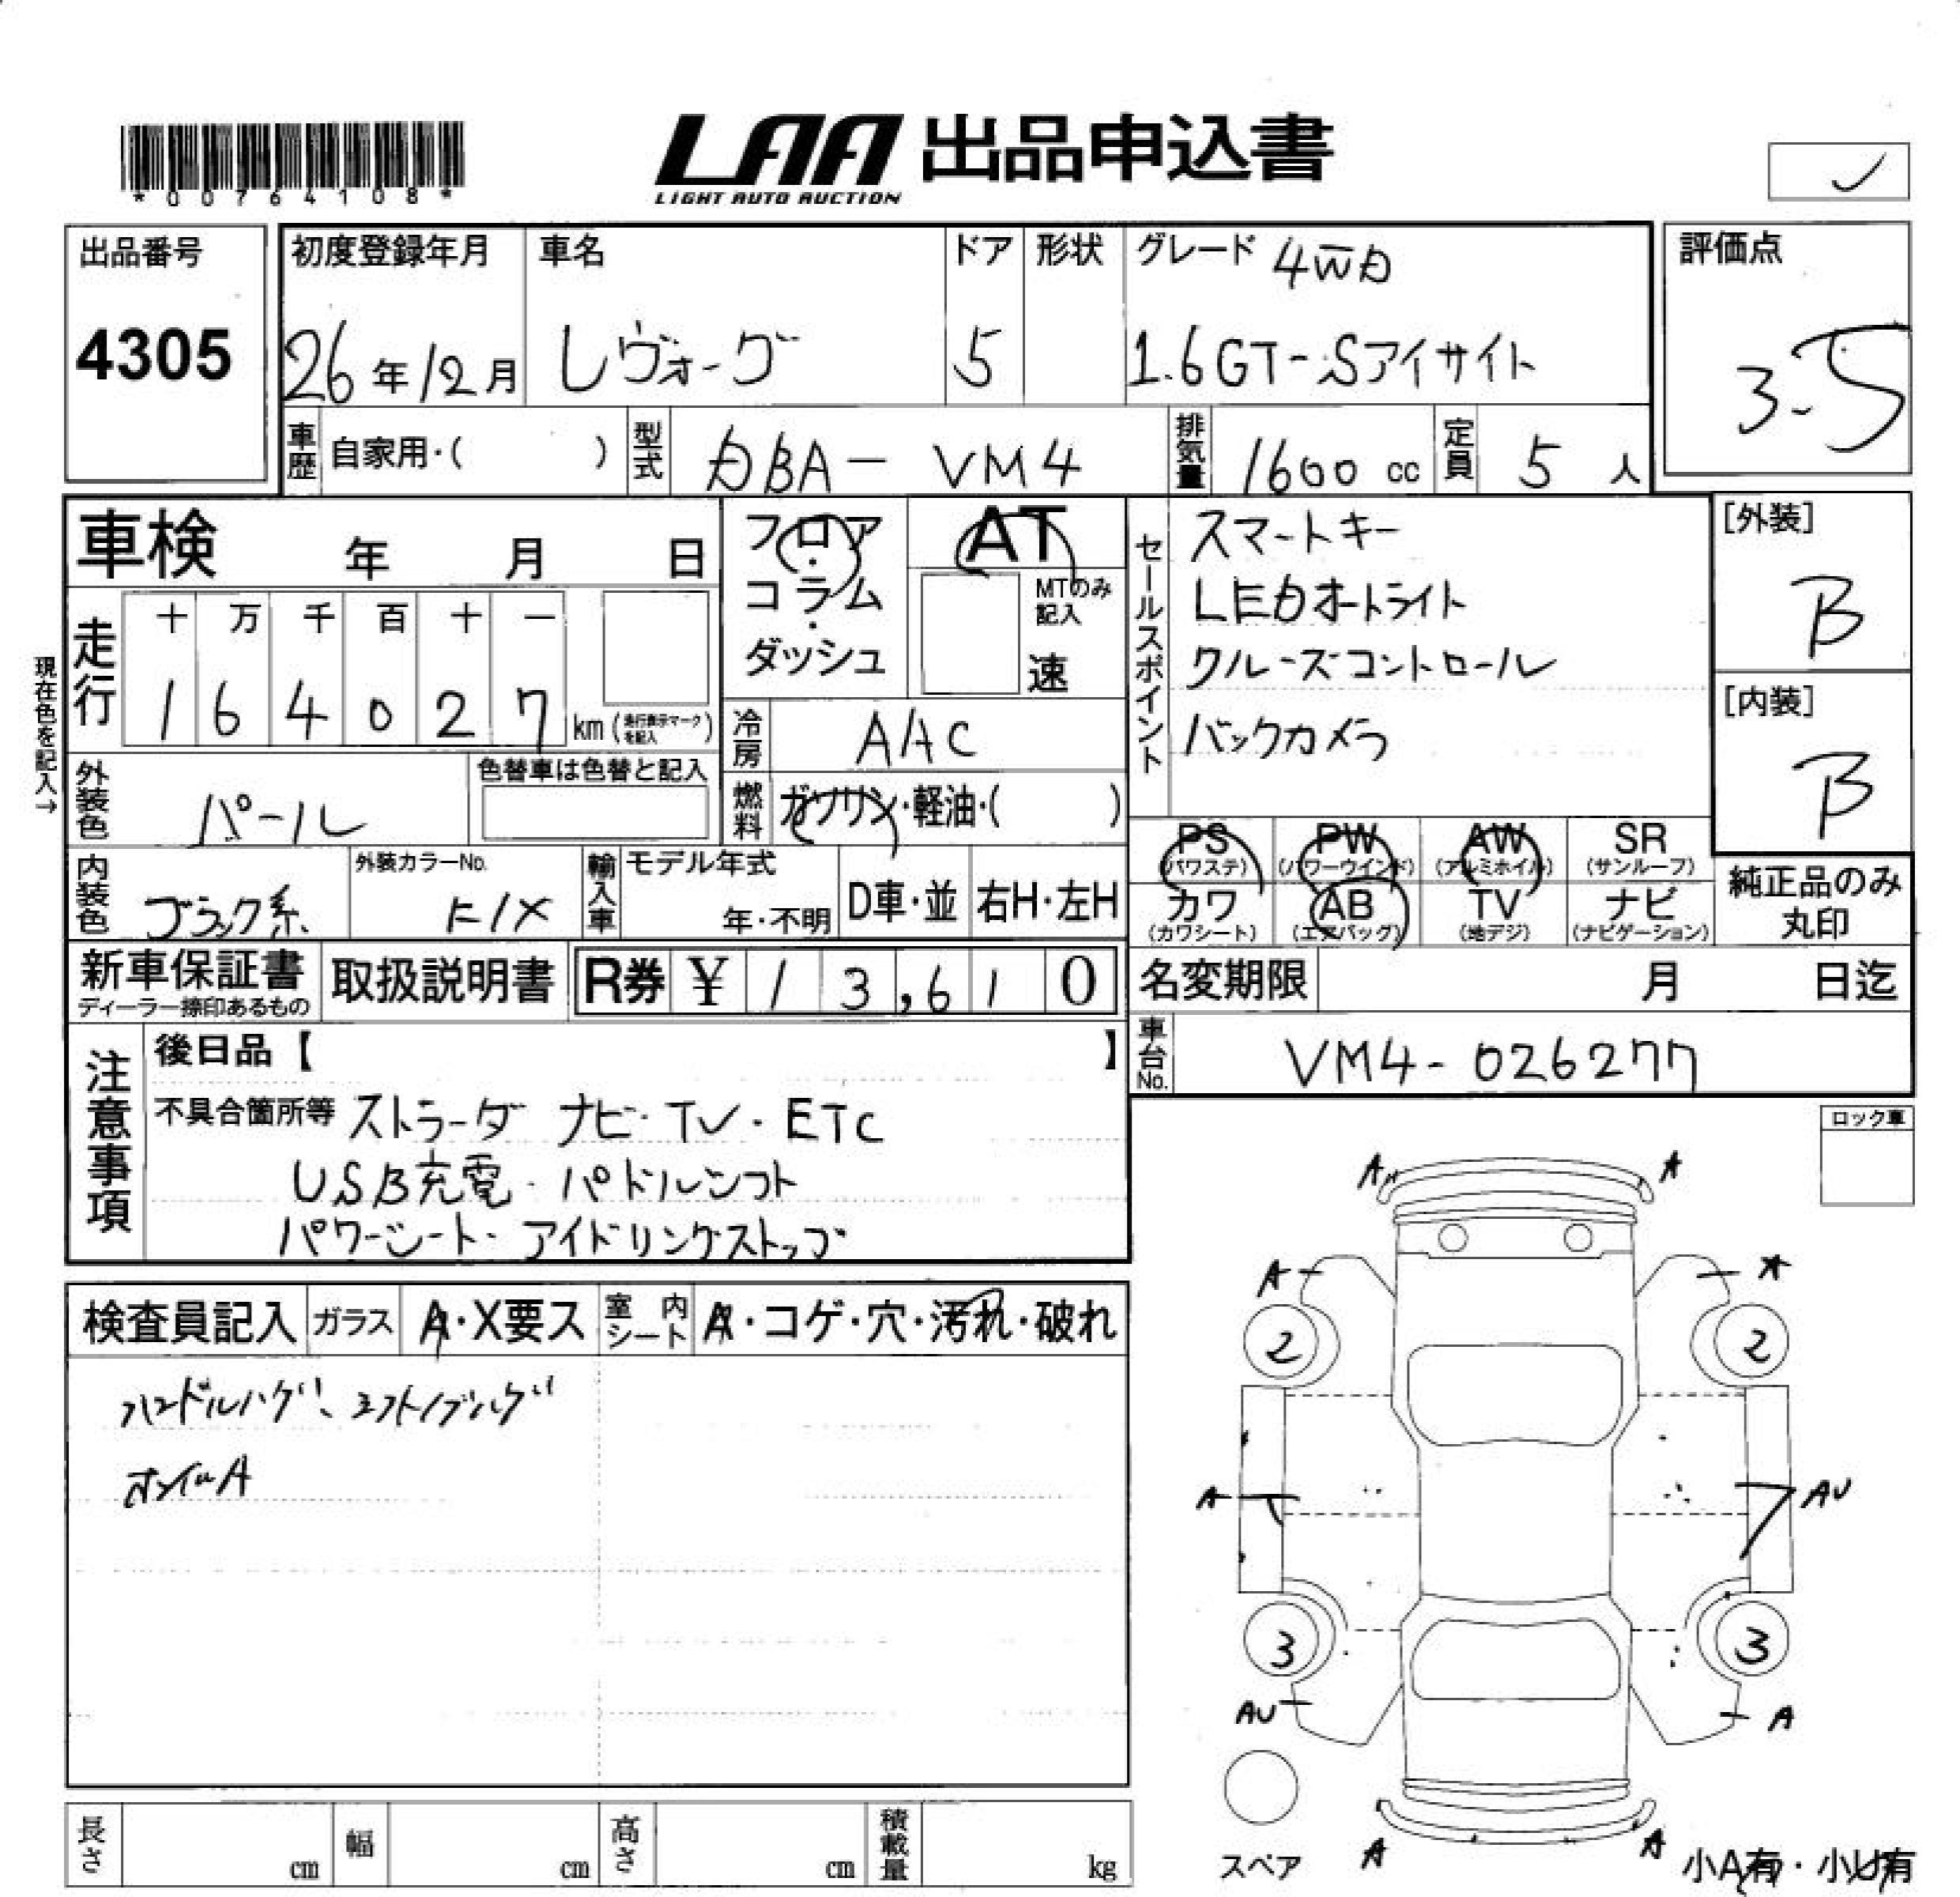 *00764108*
LAA 出品申込書
LIGHT AUTO AUCTION
出品番号 4305
初度登録年月 26年12月
車名 レヴォーグ
ドア 5
形状
グレード 4WD
1.6GT-Sアイサイト
評価点 3.5
車歴 自家用・( )
型式 DBA-VM4
排気量 1600 cc
定員 5 人
車検 年 月 日
フロア・コラム・ダッシュ
AT
MTのみ記入
速
セールスポイント
スマートキー
LEDオートライト
クルーズコントロール
バックカメラ
[外装] B
[内装] B
現在色を記入→
走行
十 万 千 百 十 一
1 6 4 0 2 7 km (走行表示マークを記入)
冷房 AAC
外装色 パール
色替車は色替と記入
燃料 ガソリン・軽油・( )
PS (パワステ)
PW (パワーウインド)
AW (アルミホイル)
SR (サンルーフ)
カワ (カワシート)
AB (エアバッグ)
TV (地デジ)
ナビ (ナビゲーション)
純正品のみ丸印
内装色 ブラック系
外装カラーNo. K1X
輸入車
モデル年式 年・不明
D車・並
右H・左H
新車保証書
ディーラー捺印あるもの
取扱説明書
R券 ¥ 13,610
名変期限 月 日迄
車台No. VM4-026277
注意事項
後日品【 】
不具合箇所等 ストラーダ ナビ・TV・ETC
USB充電・パドルシフト
パワーシート・アイドリングストップ
ロック車
検査員記入
ガラス A・X要ス
室内シート A・コゲ・穴・汚れ・破れ
ハンドルハゲ、シフトノブハゲ
A A
A A
2 2
A AU
3 3
AU A
スペア
A A
小A有・小U有
長さ cm
幅 cm
高さ cm
積載量 kg